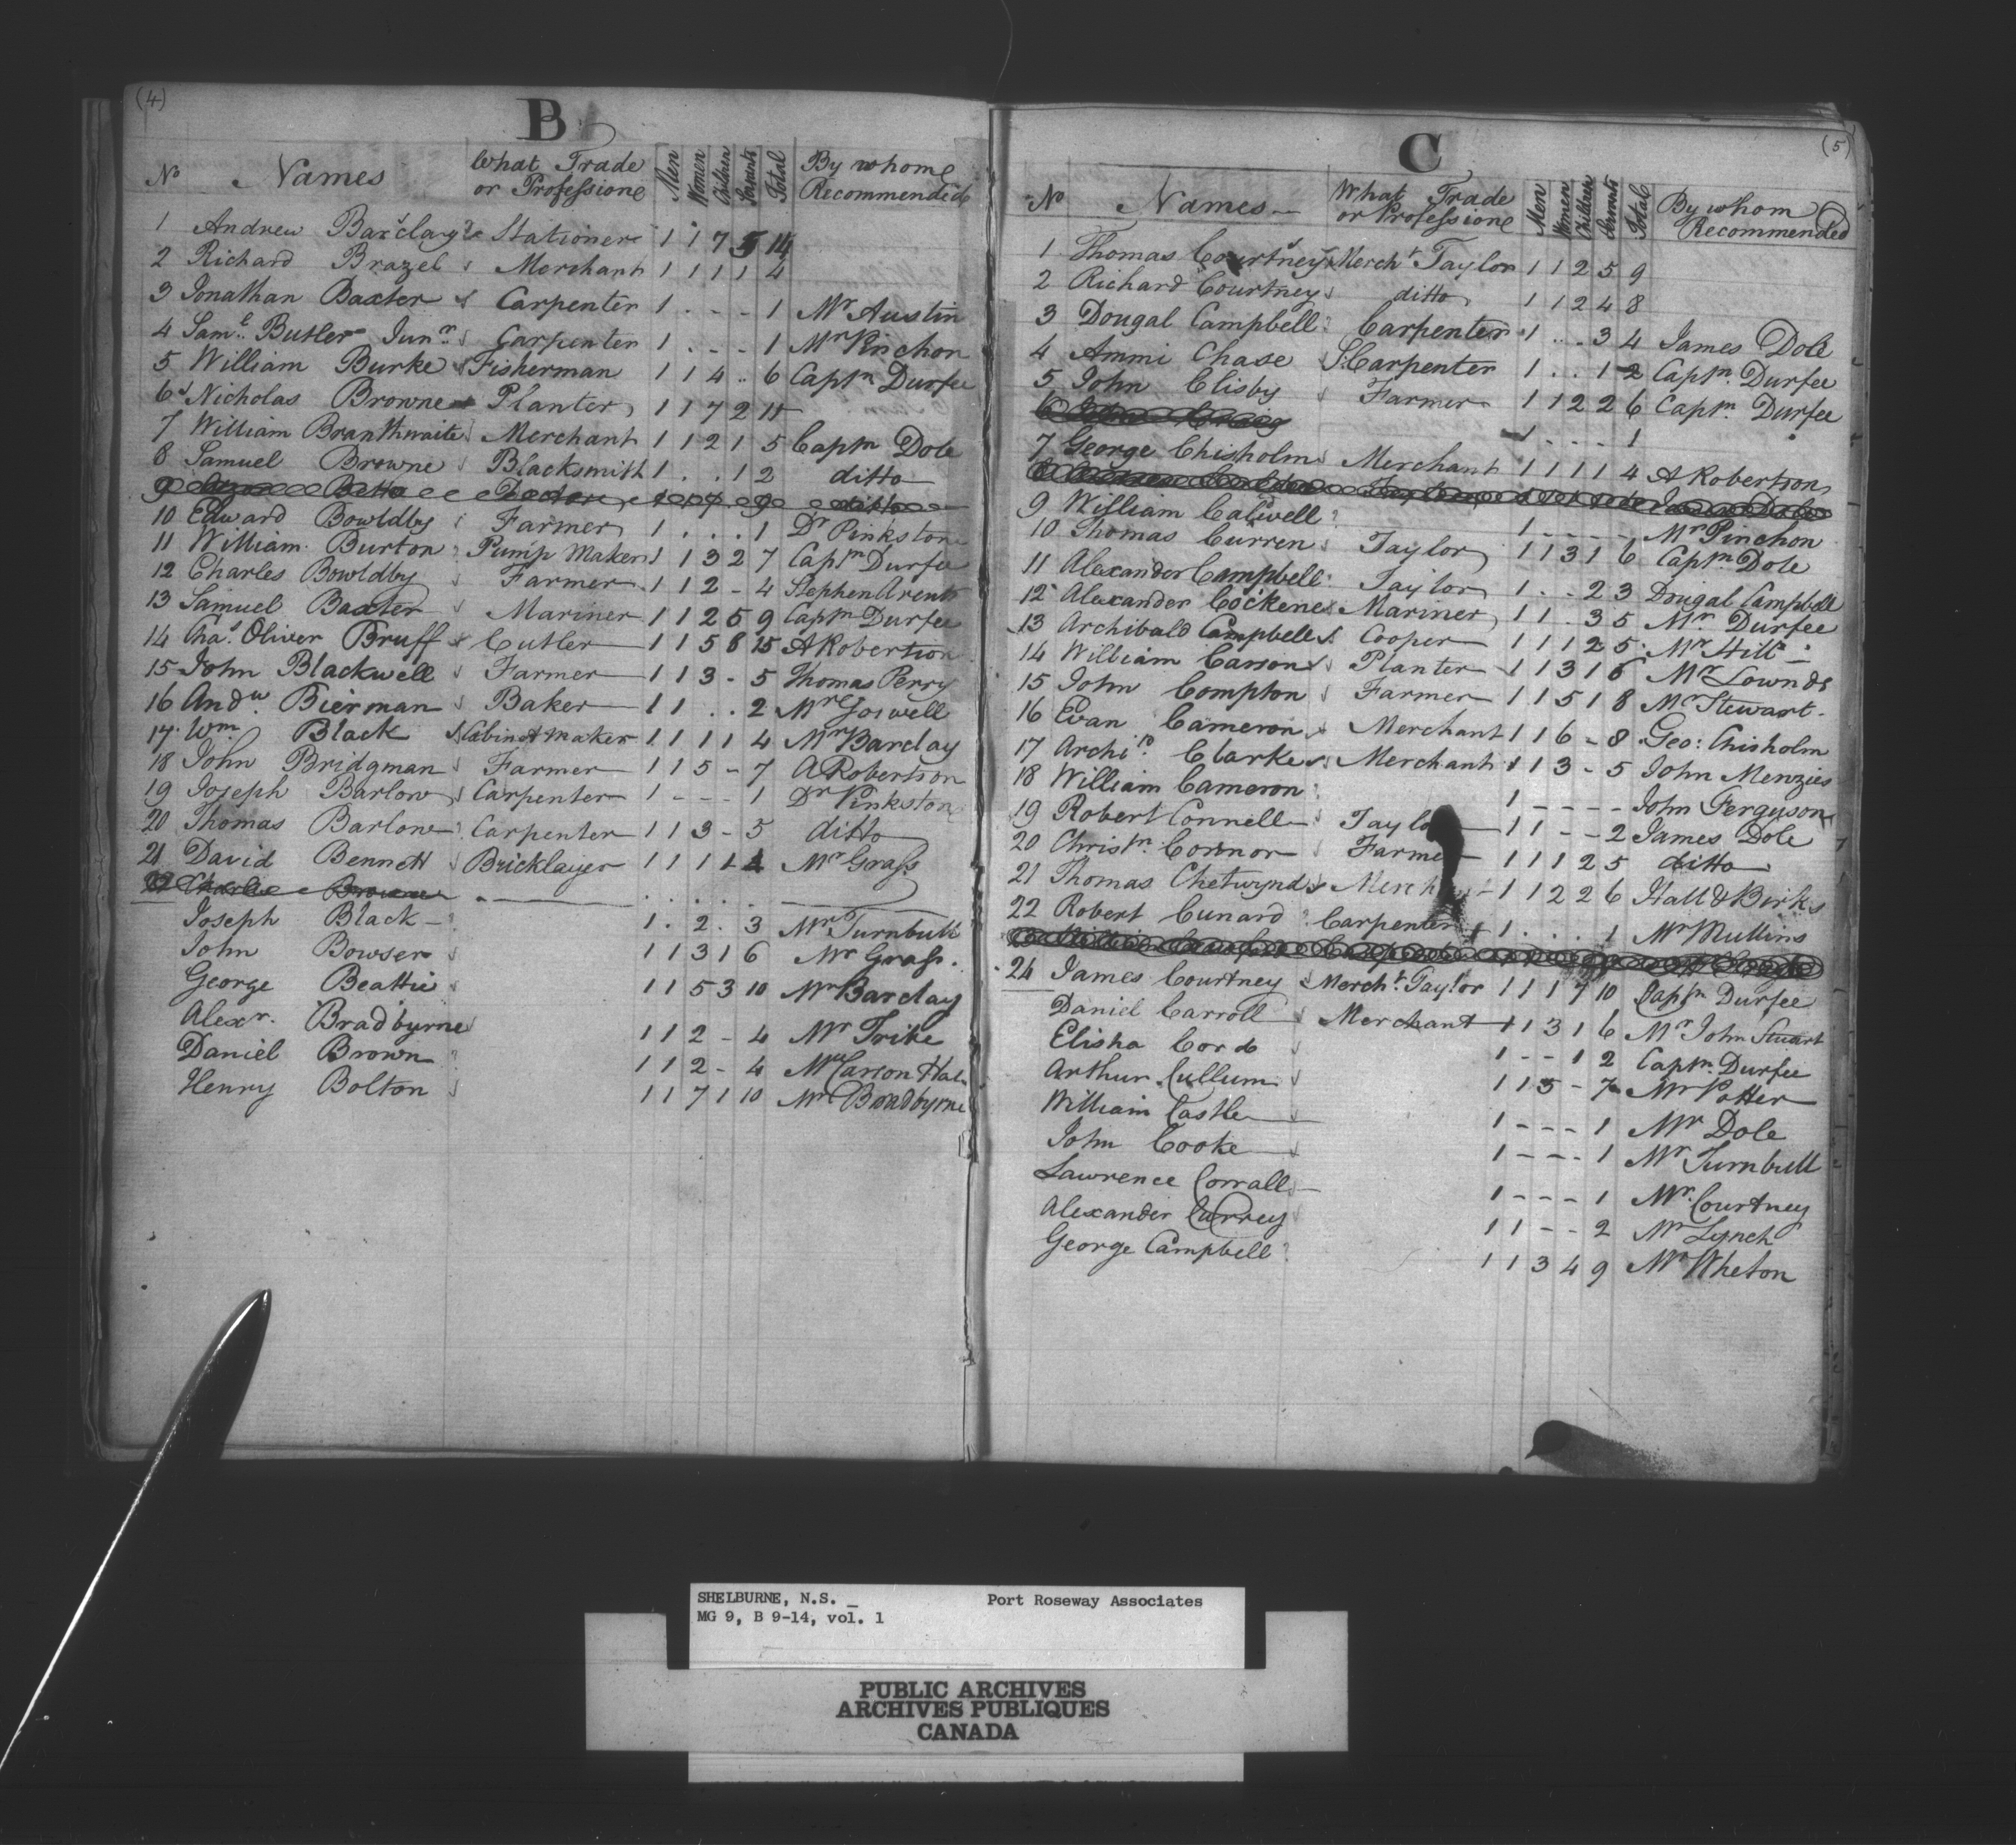 (4)
B
No Names What Trade or Professione Men Women Children Servants Total By whome Recommended
1 Andrew Barclay Stationer 1 1 7 5 14
2 Richard Brazel Merchant 1 1 1 1 4
3 Jonathan Baxter Carpenter 1 . - - 1 Mr Austin
4 Saml. Butler Junr. Carpenter 1 . - - 1 Mr Pinchon
5 William Burke Fisherman 1 1 4 .. 6 Captn Durfee
6 Nicholas Browne Planter 1 1 7 2 11
7 William Branthwaite Merchant 1 1 2 1 5 Captn Dole
8 Samuel Browne Blacksmith 1 . . 1 2 ditto
9 Betto Doctor 9 ditto
10 Edward Bowldby Farmer 1 . . . 1 Dr Pinkston
11 William Burton Pump Maker 1 1 3 2 7 Captn Durfee
12 Charles Bowldby Farmer 1 1 2 - 4 Stephen Arents
13 Samuel Baxter Mariner 1 1 2 5 9 Captn Durfee
14 Chas. Oliver Bruff Cutler 1 1 5 8 15 A Robertson
15 John Blackwell Farmer 1 1 3 - 5 Thomas Perry
16 Andw. Bierman Baker 1 1 . . 2 Mr Goswell
17 Wm Black Cabinet maker 1 1 1 1 4 Mr Barclay
18 John Bridgman Farmer 1 1 5 - 7 A Robertson
19 Joseph Barlow Carpenter 1 - - - 1 Dr Pinkston
20 Thomas Barlow Carpenter 1 1 3 - 5 ditto
21 David Bennett Bricklayer 1 1 1 1 4 Mr Grass
22 Charles Browne
Joseph Black 1 . 2 . 3 Mr Turnbull
John Bowser 1 1 3 1 6 Mr Grass.
George Beattie 1 1 5 3 10 Mr Barclay
Alexr. Bradbyrne 1 1 2 - 4 Mr Trike
Daniel Brown 1 1 2 - 4 Mr Carson
Henry Bolton 1 1 7 1 10 Mr Bradbyrne
(5)
C
No Names What Trade or Professione Men Women Children Servants Total By whom Recommended
1 Thomas Courtney Mercht Taylor 1 1 2 5 9
2 Richard Courtney ditto 1 1 2 4 8
3 Dougal Campbell Carpenter 1 . . . 3 4 James Dole
4 Ammi Chase S. Carpenter 1 . . 1 2 Captn. Durfee
5 John Clisby Farmer 1 1 2 2 6 Captn. Durfee
6 John Craig 1 - - - 1
7 George Chisholm Merchant 1 1 1 1 4 A Robertson
8 James Dole
9 William Calwell 1 - - - - Mr Pinchon
10 Thomas Curren Taylor 1 1 3 1 6 Captn Dole
11 Alexander Campbell Taylor 1 . - 2 3 Dougal Campbell
12 Alexander Cockene Mariner 1 1 . 3 5 Mr. Durfee
13 Archibald Campbell Cooper 1 1 1 2 5 Mr Hill
14 William Carson Planter 1 1 3 1 6 Mr Lownds
15 John Compton Farmer 1 1 5 1 8 Mr Stewart.
16 Evan Cameron Merchant 1 1 6 - 8 Geo: Chisholm
17 Archid. Clarke Merchant 1 1 3 - 5 John Menzies
18 William Cameron 1 - - - - John Ferguson
19 Robert Connell Taylor 1 1 - - 2 James Dole
20 Christn. Connor Farmer 1 1 1 2 5 ditto
21 Thomas Chetwynd Merch 1 1 2 2 6 Hall & Birks
22 Robert Cunard Carpenter 1 . . . 1 Mr Mullins
24 James Courtney Mercht. Taylor 1 1 1 7 10 Captn Durfee
Daniel Carroll Merchant 1 1 3 1 6 Mr John Stuart
Elisha Cord 1 - - 1 2 Captn. Durfee
Arthur Cullum 1 1 5 - 7 Mr Potter
William Castle 1 - - - 1 Mr Dole
John Cooke 1 - - - 1 Mr Turnbull
Lawrence Corrall 1 - - - 1 Mr. Courtney
Alexander Currey 1 1 - - 2 Mr Lynch
George Campbell 1 1 3 4 9 Mr Wheton
SHELBURNE, N.S. _ Port Roseway Associates
MG 9, B 9-14, vol. 1
PUBLIC ARCHIVES
ARCHIVES PUBLIQUES
CANADA